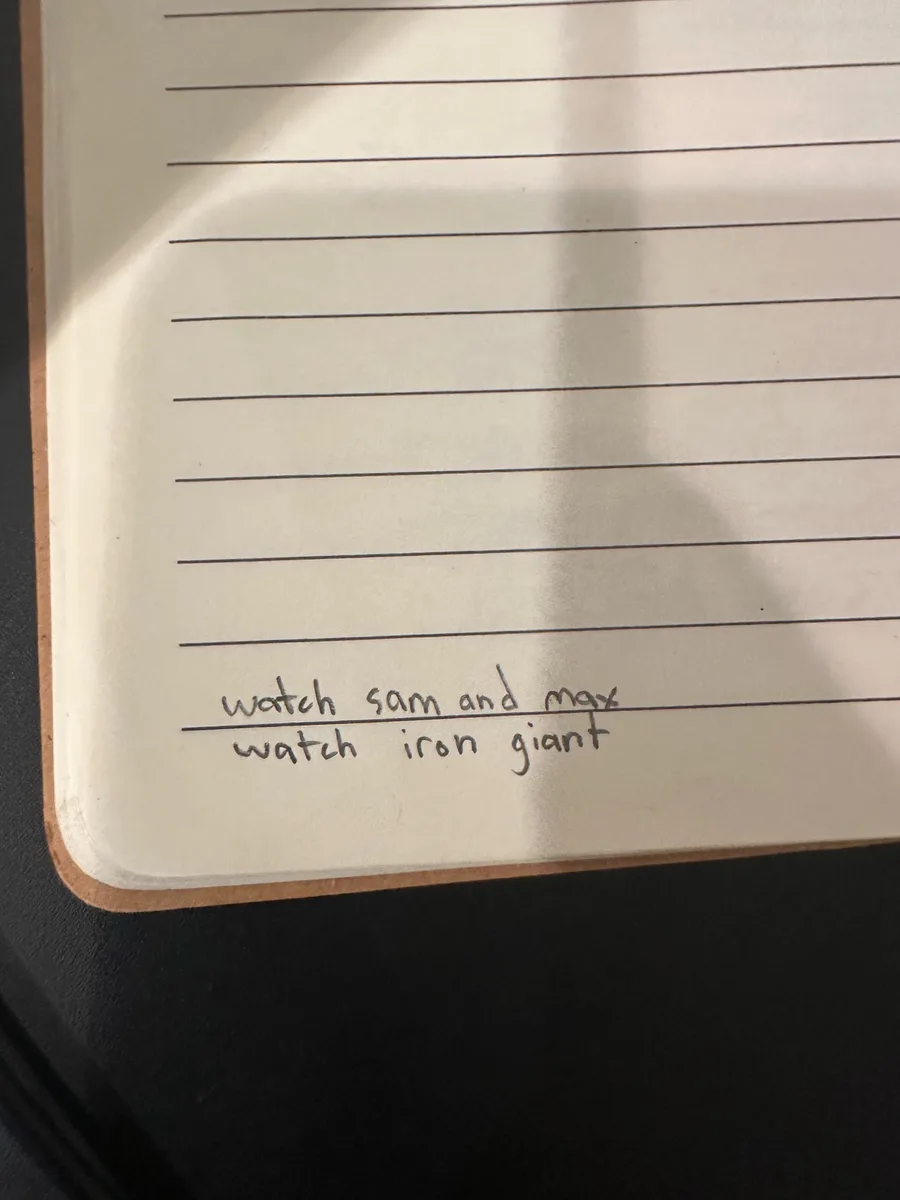 watch sam and max
watch iron giant